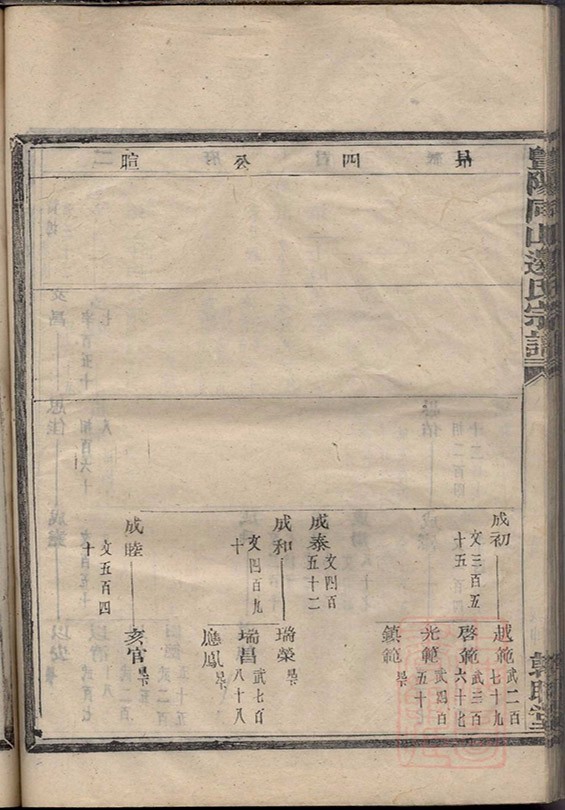 暨陽同山邊氏宗譜
敦睦堂
昴四公暄
成初
文三百五
十五
越範
武二百
七十九
啓範
武三百
六十七
光範
武四百
五十
鎮範
早
成泰
文四百
五十二
成和
文四百九
十
瑞榮
早
瑞昌
武七百
八十八
應鳳
早
成睦
文五百四
十
亥官
早